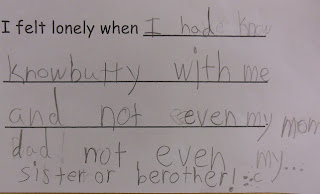 I felt lonely when I had know
knowbutty with me
and not even my mom
dad not even my...
sister or berother! :c